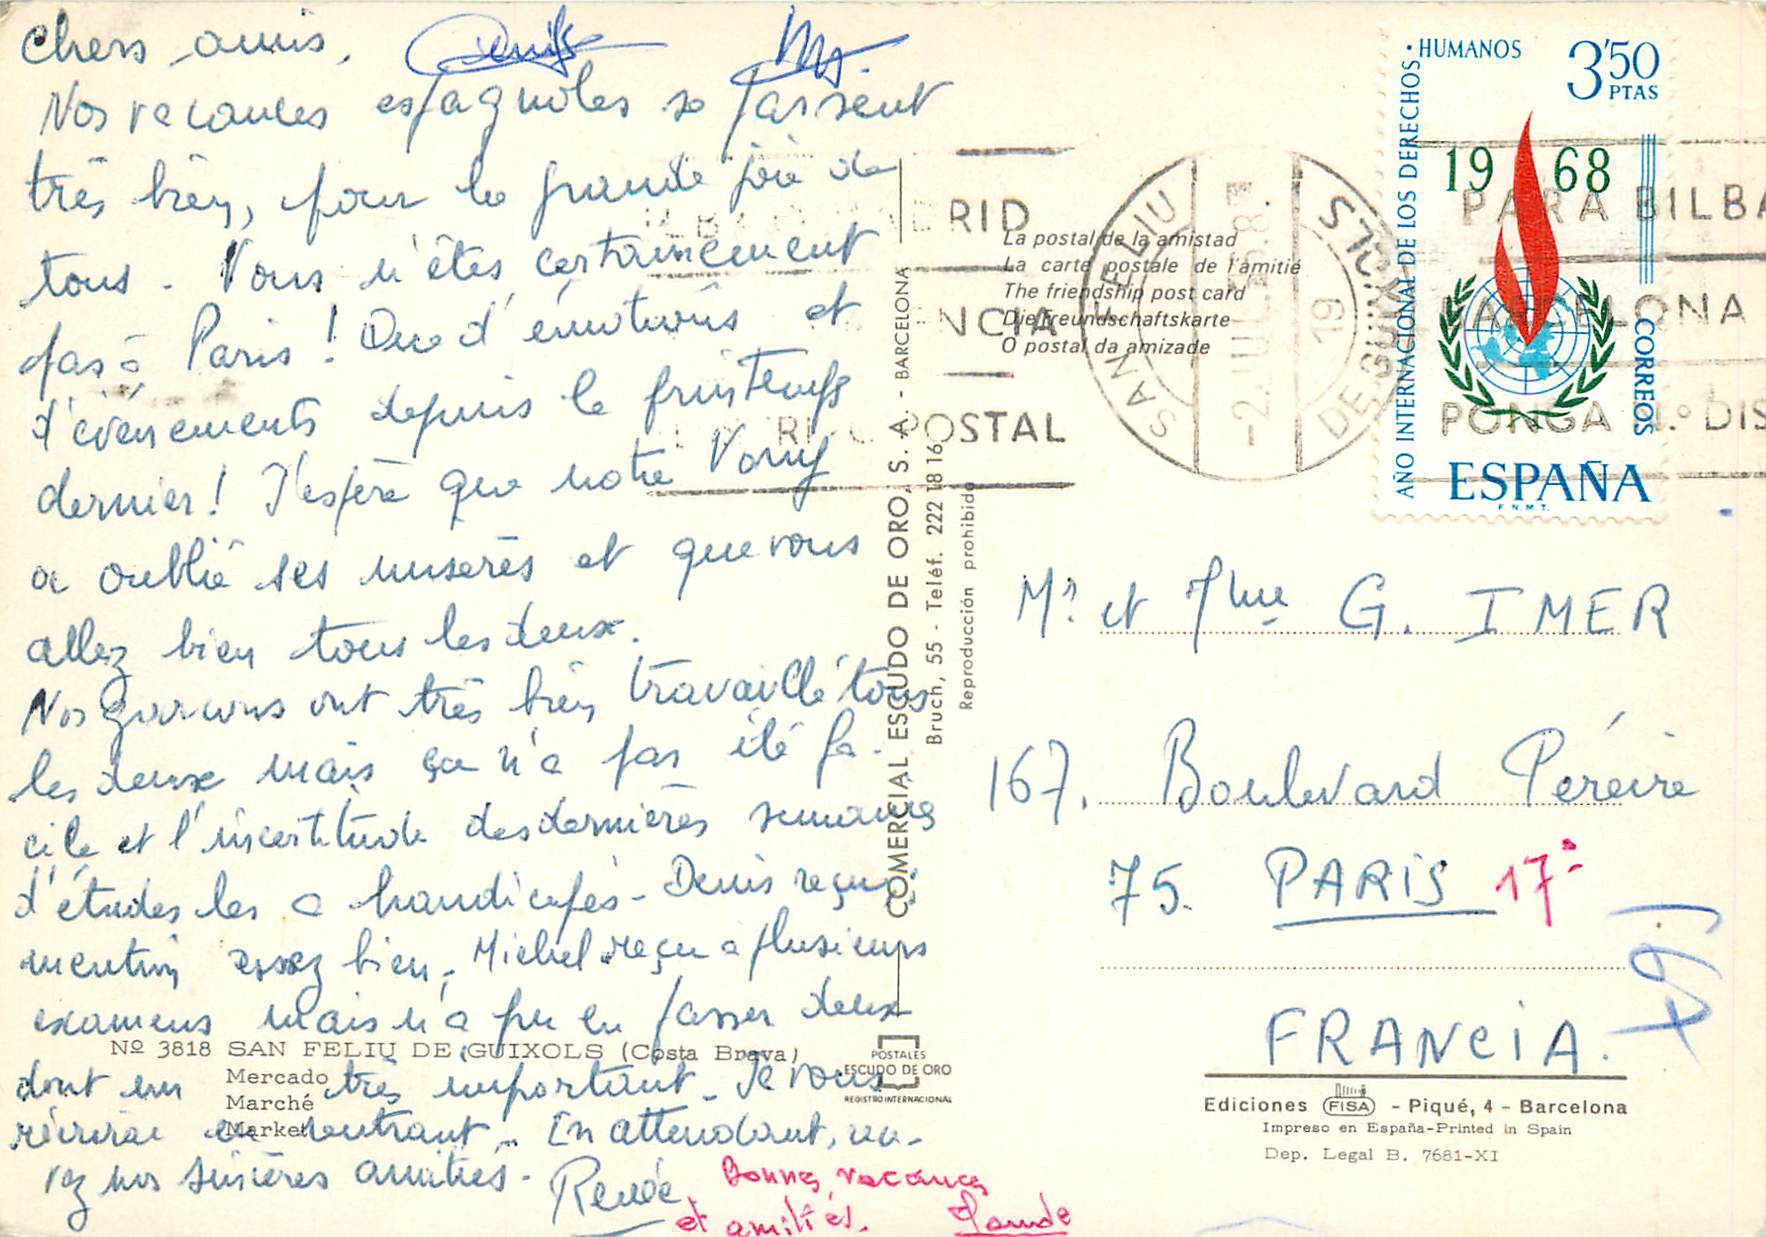 Chers amis,
Nos vacances espagnoles se passent
très bien, pour la grande joie de
tous. Vous n'êtes certainement
pas à Paris ! Que d'émotions et
d'évènements depuis le printemps
dernier ! J'espère que notre
a oublié ses misères et que vous
allez bien tous les deux.
Nos garçons ont très bien travaillé tous
les deux mais ça n'a pas été fa-
cile et l'incertitude des dernières semaines
d'études les a handicapés - Denis reçu
mention assez bien, Michel reçu a plusieurs
examens mais n'a pu en passer deux
dont un très important - Je vous
récrirai en rentrant - En attendant, rece-
vez nos sincères amitiés -
Renée
Bonnes vacances
et amitiés.
Nº 3818 SAN FELIU DE GUIXOLS (Costa Brava)
Mercado
Marché
Market
COMERCIAL ESCUDO DE ORO, S. A. - BARCELONA
Bruch, 55 - Teléf. 222 18 16
Reproducción prohibida
POSTALES
ESCUDO DE ORO
REGISTRO INTERNACIONAL
La postal de la amistad
La carte postale de l'amitié
The friendship post card
Die freundschaftskarte
O postal da amizade
RID
NCIA
POSTAL
SAN FELIU
DE GUIXOLS
-2 JUL 68
19
PARA BILBA
BARCELONA
PONGA N.º DIS
AÑO INTERNACIONAL DE LOS DERECHOS
HUMANOS
3'50
PTAS
1968
CORREOS
ESPAÑA
F.N.M.T.
Mr et Mme G. IMER
167. Boulevard Péreire
75. PARIS 17e
FRANCIA.
Ediciones FISA - Piqué, 4 - Barcelona
Impreso en España-Printed in Spain
Dep. Legal B. 7681-XI